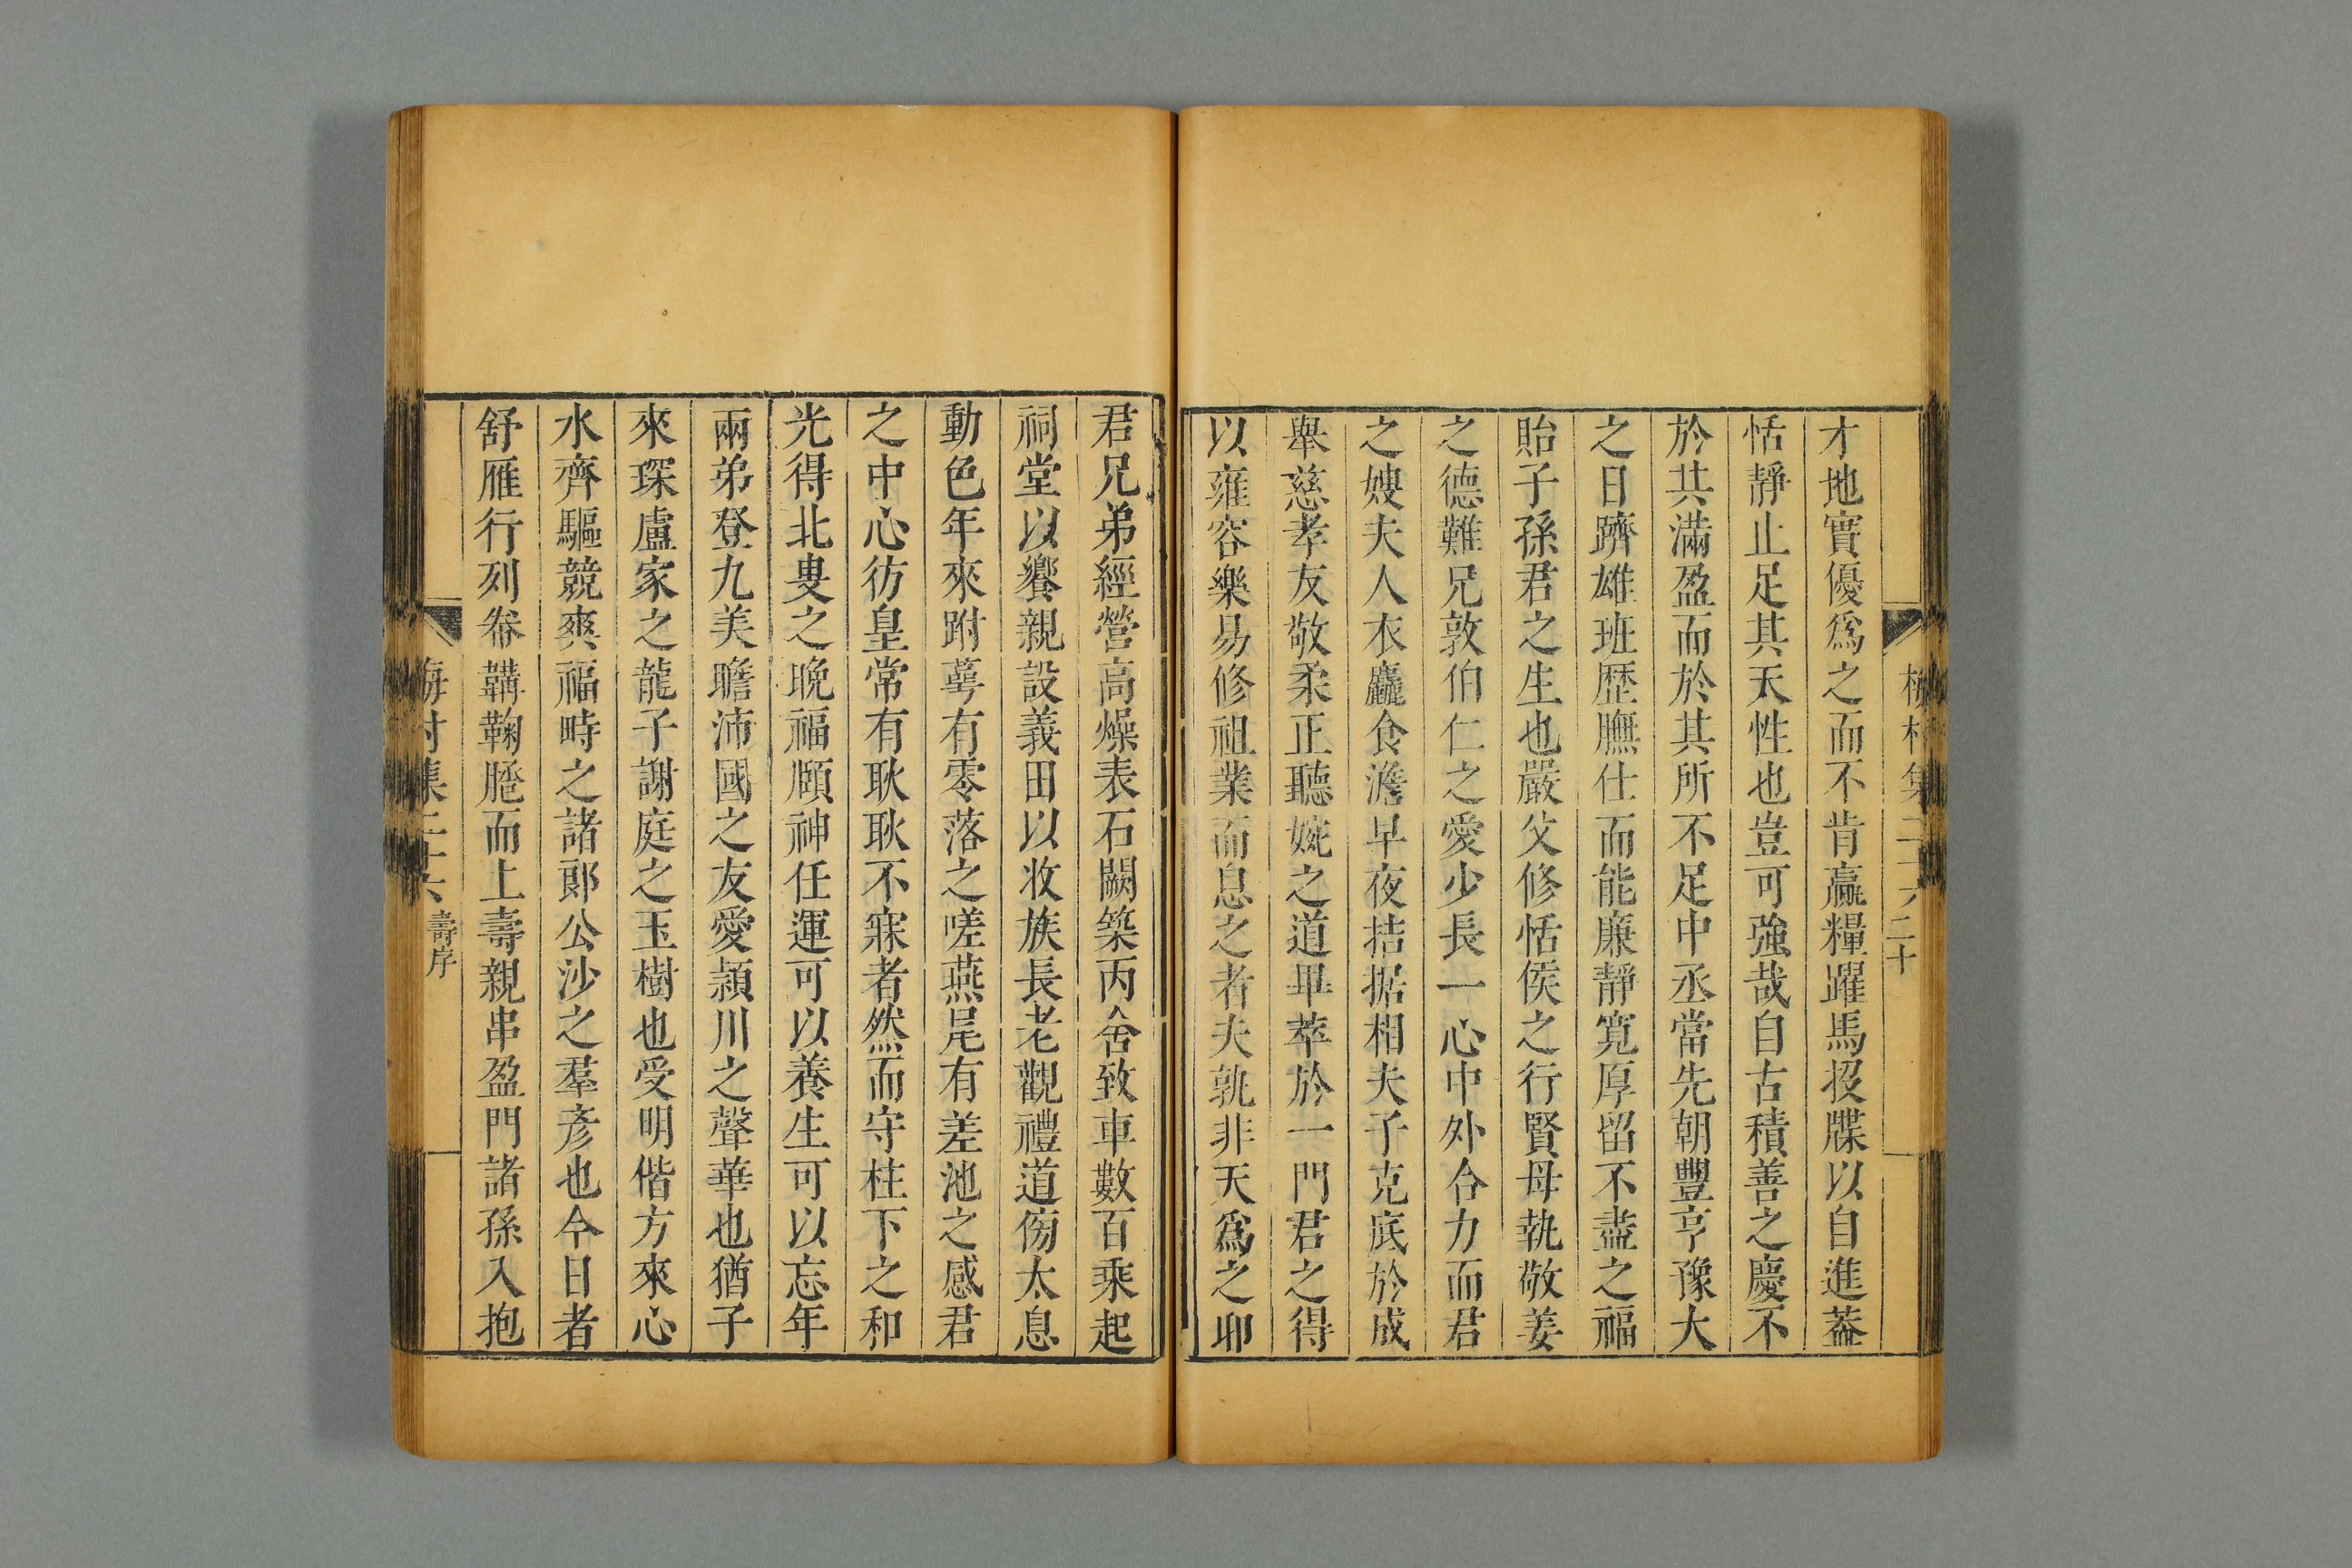 梅村集 二十六 二十
才地實優爲之而不肯羸糧躍馬投牒以自進葢
恬靜止足其天性也豈可強哉自古積善之慶不
於共滿盈而於其所不足中丞當先朝豐亨豫大
之日躋雄班歷膴仕而能廉靜寬厚留不盡之福
貽子孫君之生也嚴父修恬侯之行賢母執敬姜
之德難兄敦伯仁之愛少長一心中外合力而君
之嫂夫人衣麤食澹早夜拮据相夫子克底於成
舉慈孝友敬柔正聽婉之道畢萃於一門君之得
以雍容樂易修祖業而息之者夫孰非天爲之卯
君兄弟經營高燥表石闕築丙舍致車數百乘起
祠堂以饗親設義田以收族長老觀禮道傍太息
動色年來跗萼有零落之嗟燕尾有差池之感君
之中心彷皇常有耿耿不寐者然而守柱下之和
光得北叟之晚福頤神任運可以養生可以忘年
兩弟登九美瞻沛國之友愛潁川之聲華也猶子
來琛盧家之龍子謝庭之玉樹也受明偕方來心
水齊驅競爽福畤之諸郎公沙之羣彥也今日者
舒雁行列帣韝鞠𦜕而上壽親串盈門諸孫入抱
梅村集 二十六 壽序